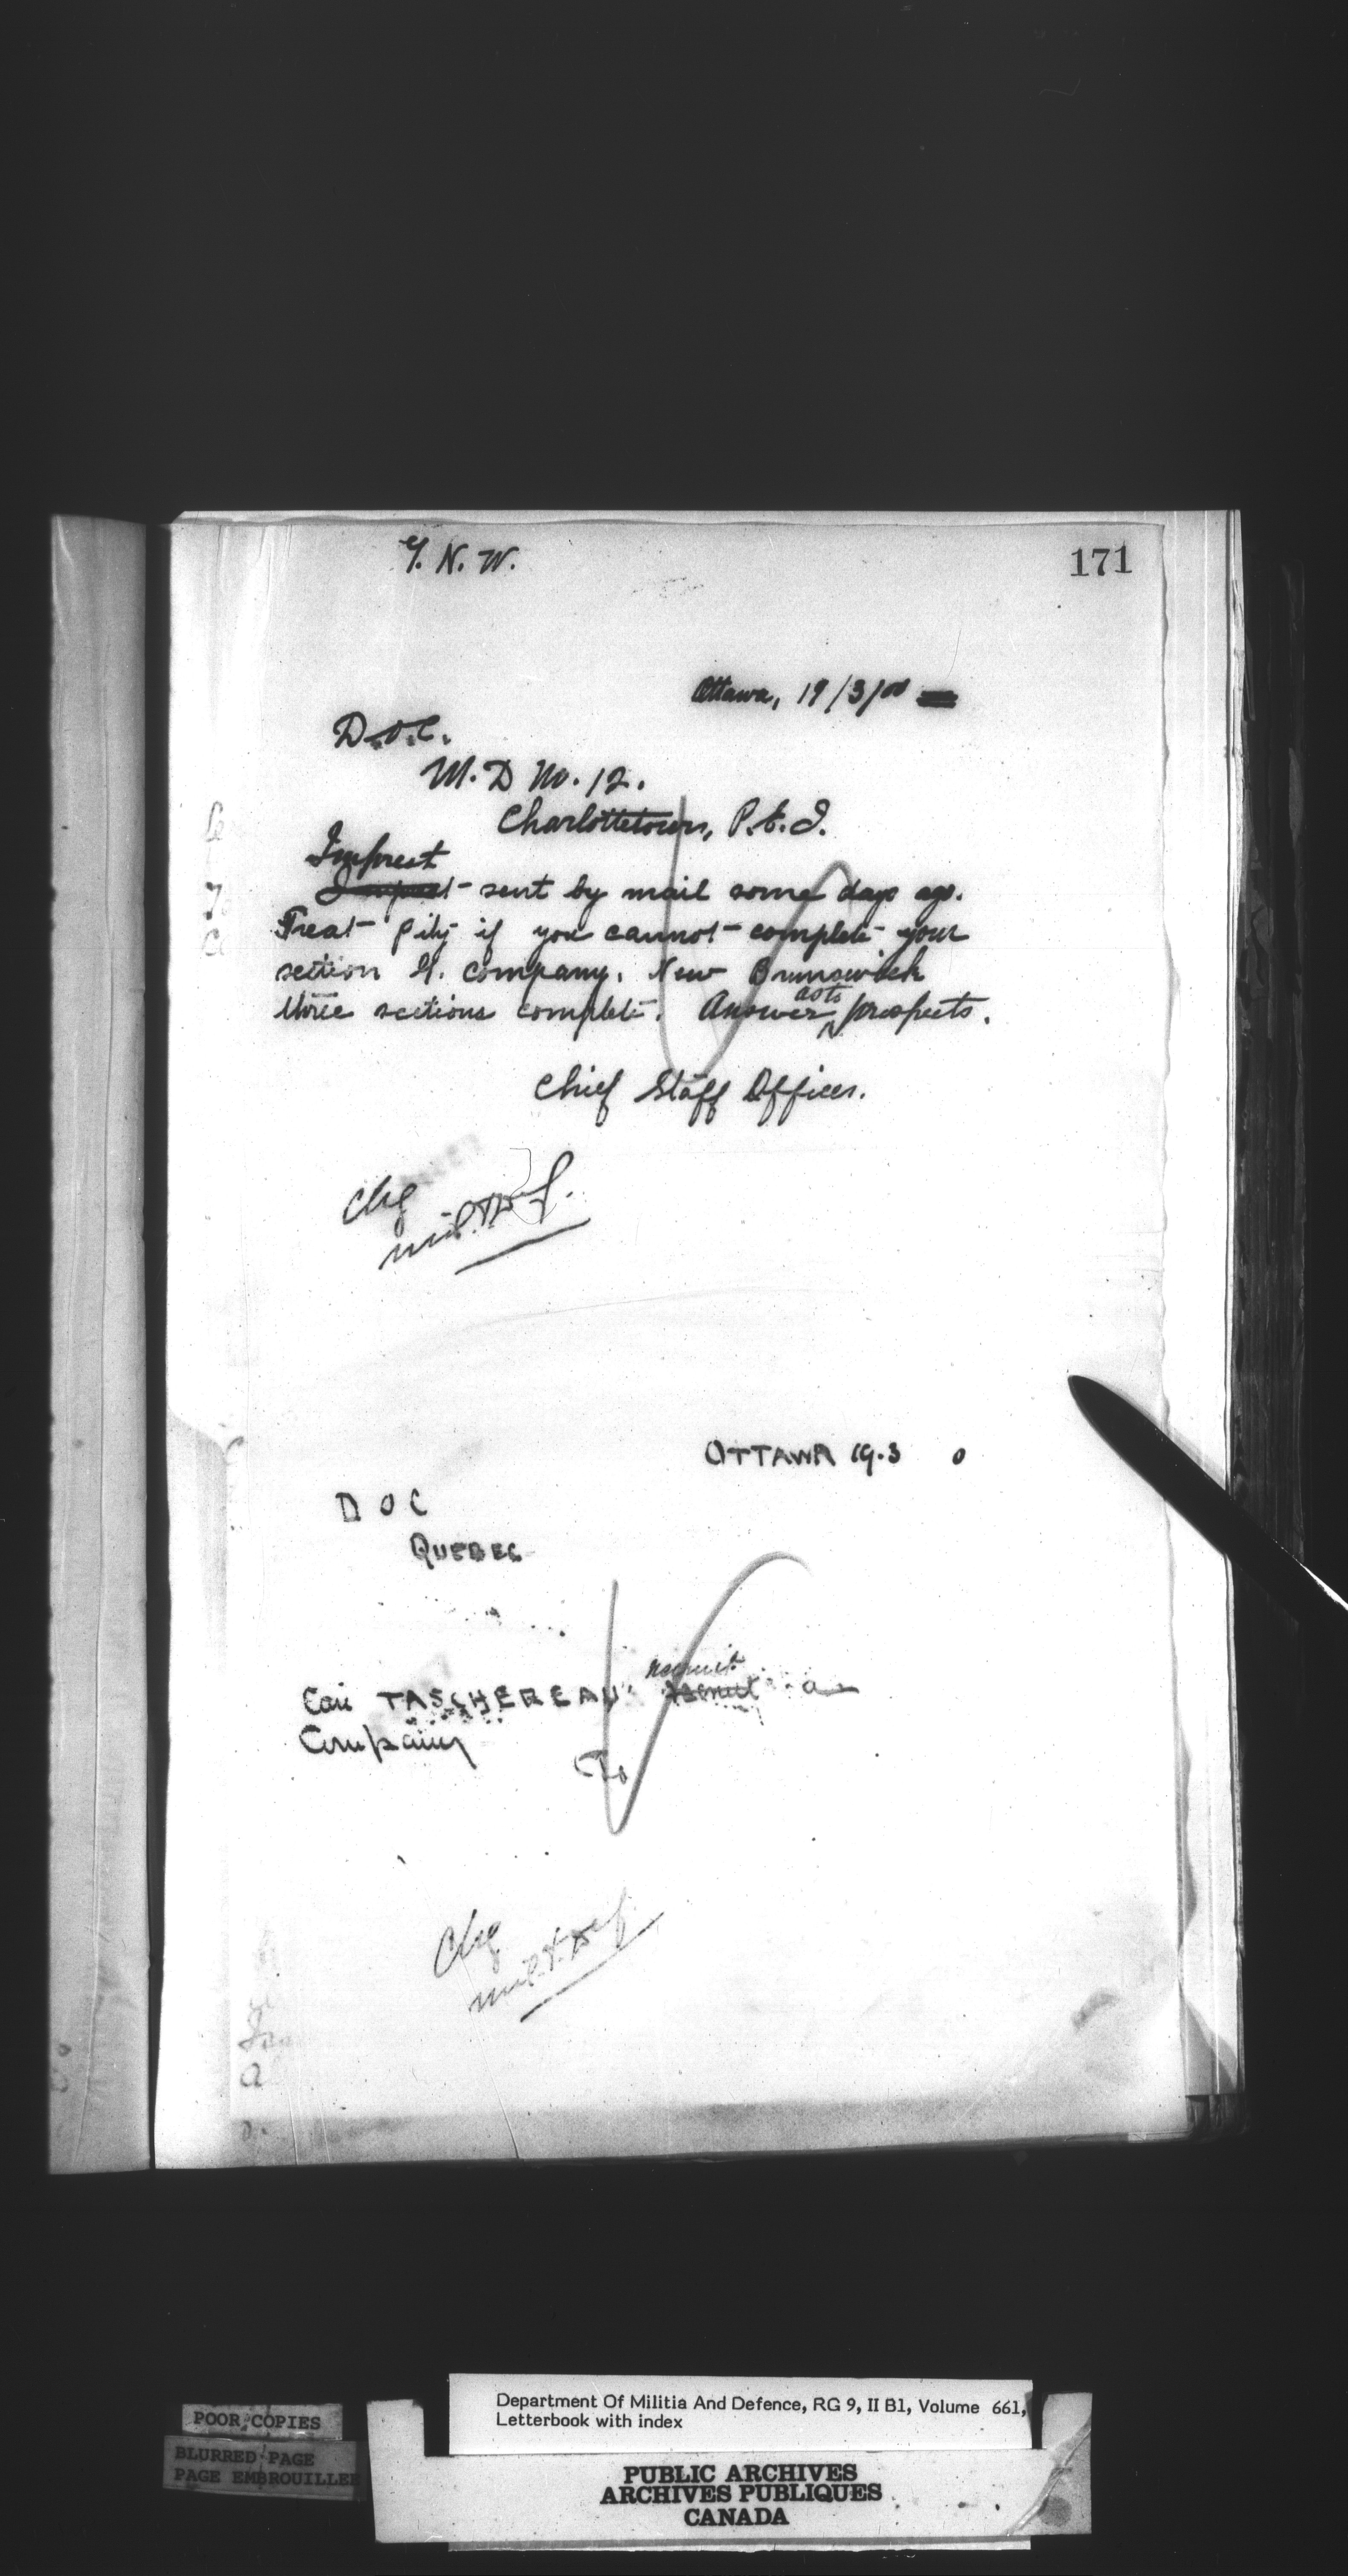 G. N. W.
171
Ottawa, 19/3/00
D.O.C.
M. D No. 12.
Charlottetown, P.E.I.
Imprest
sent by mail some days ago.
Great pity if you cannot complete your
section G. Company. New Brunswick
three sections complete. Answer as to prospects.
Chief Staff Officer.
Chg
Mil. & Def.
OTTAWA 19.3 0
D O C
QUEBEC
Can TASCHEREAU recruit a
Company
Chg
Mil. & Def.
POOR COPIES
BLURRED PAGE
PAGE EMBROUILLEE
Department Of Militia And Defence, RG 9, II B1, Volume 661,
Letterbook with index
PUBLIC ARCHIVES
ARCHIVES PUBLIQUES
CANADA